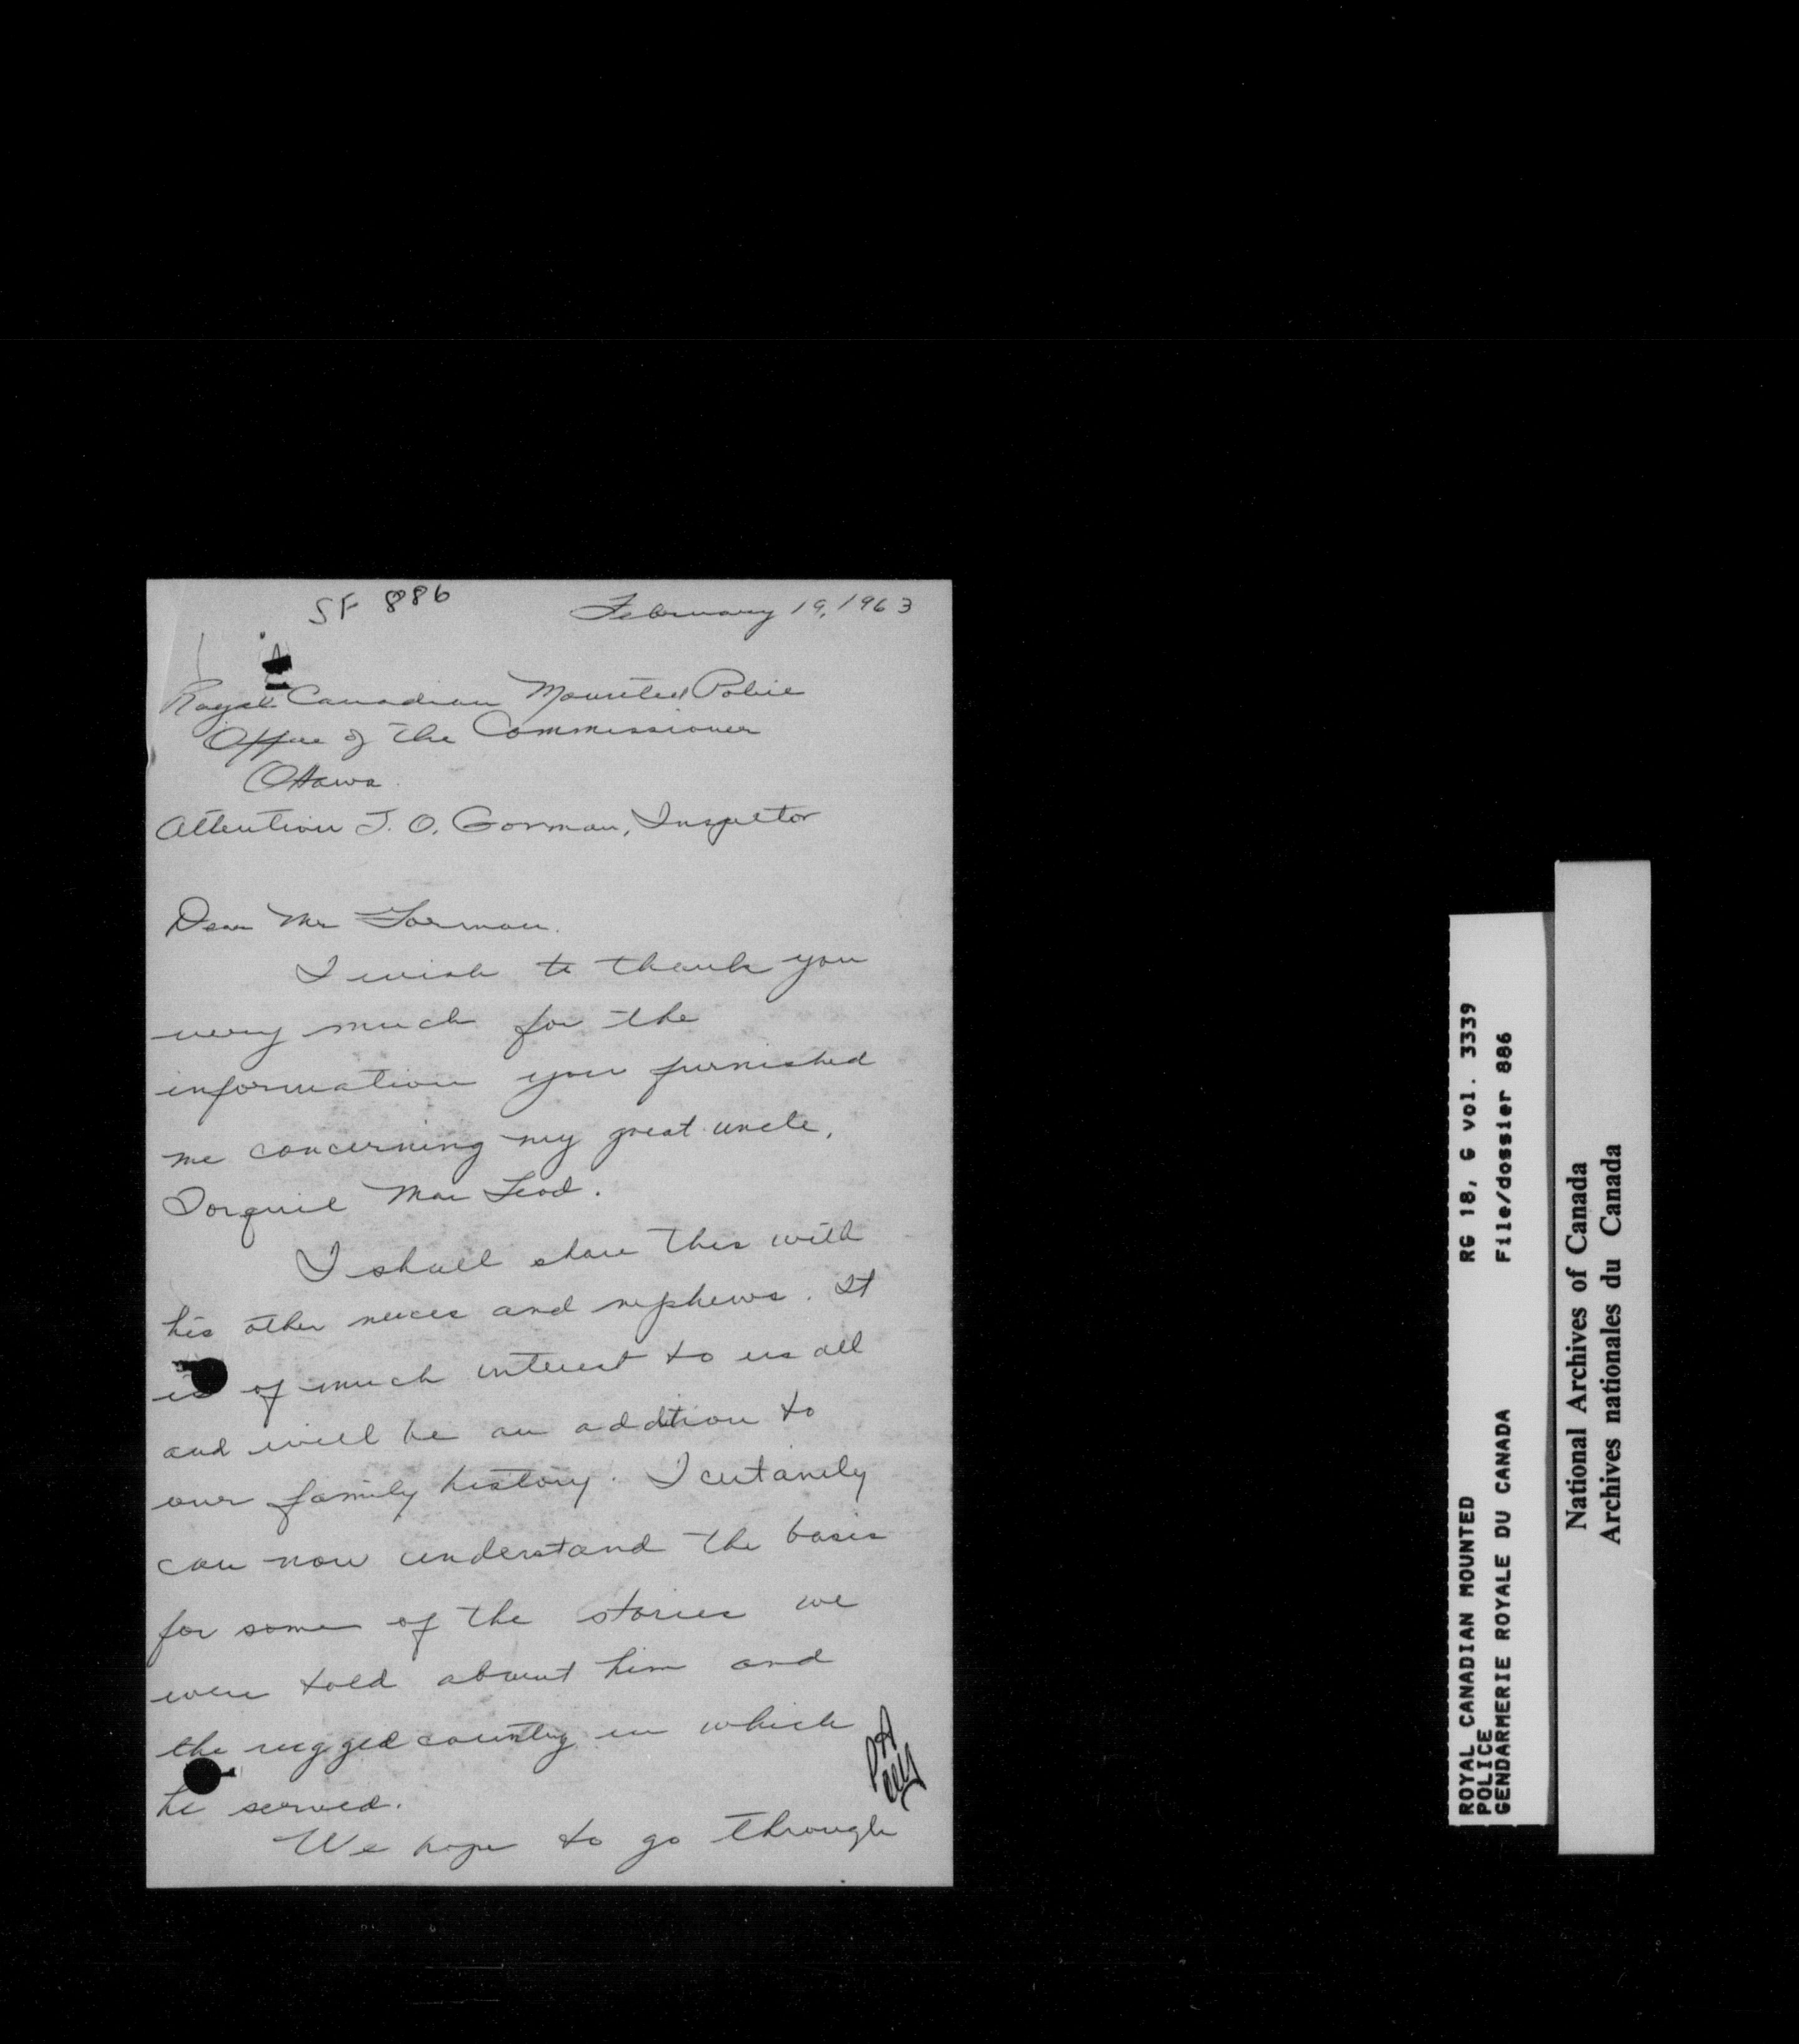 SF 886
February 19, 1963
Royal Canadian Mounted Police
Office of the Commissioner
Ottawa.
Attention J. O. Gorman, Inspector
Dear Mr Gorman.
I wish to thank you
very much for the
information you furnished
me concerning my great uncle,
Torquil Mac Leod.
I shall share this with
his other nieces and nephews. It
is of much interest to us all
and will be an addition to
our family history. I certainly
can now understand the basis
for some of the stories we
were told about him and
the rugged country in which
he served.
We hope to go through
ROYAL CANADIAN MOUNTED RG 18, G vol. 3339
POLICE
GENDARMERIE ROYALE DU CANADA File/dossier 886
National Archives of Canada
Archives nationales du Canada